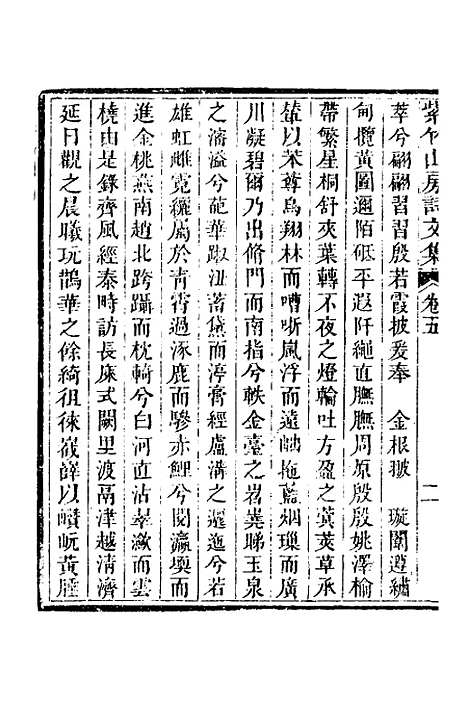 紫竹山房詩文集 卷五 二
萃兮翩翩習習殷若霞披爰奉 金根翠 璇闈遵繡
甸攬黃圖邇陌砥平遐阡繩直膴膴周原殷殷姚澤榆
帶繁星桐舒夾葉轉不夜之燈輪吐方盈之蓂莢草承
輦以茱尊鳥翔林而嘈哳嵐浮而遠岫拖藍烟璅而廣
川凝碧爾乃出脩門而南指兮軼金臺之岧嶤睇玉泉
之滃溢兮葩華踧沑蓄黛而渟膏經盧溝之邐迤兮若
雄虹雌霓纚屬於青霄過涿鹿而驂赤鯉兮閱瀛堧而
進金桃燕南趙北跨躡而枕輢兮白河直沽萃潎而雲
橈由是錄齊風經泰時訪長庥式闕里渡鬲津越淸濟
延日觀之晨曦玩鵲華之餘綺徂徠嶻嶭以嶙岏黃腄